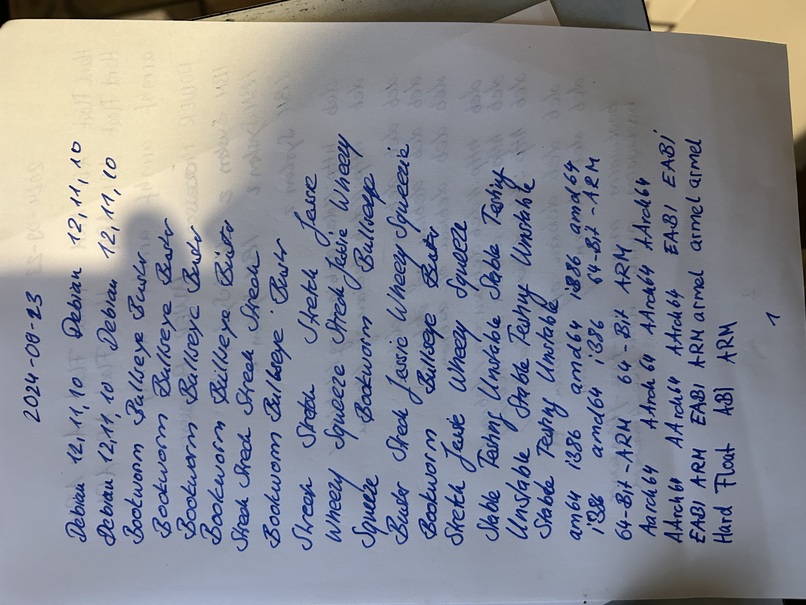 2024-09-23
Debian 12, 11, 10 Debian 12, 11, 10
Debian 12, 11, 10 Debian 12, 11, 10
Bookworm Bullseye Buster
Bookworm Bullseye Buster
Bookworm Bullseye Buster
Bookworm Bullseye Buster
Strech Strech Strech Strech
Bookworm Bullseye Buster
Strech Stretch Stretch Jessie
Wheezy Squeeze Strech Jessie Wheezy
Squeeze Bookworm Bullseye
Buster Strech Jessie Wheezy Squeezie
Bookworm Bullseye Buster
Stretch Jessie Wheezy Squeeze
Stable Testing Unstable Stable Testing
Unstable Stable Testing Unstable
Stable Testing Unstable
am64 i386 amd64 i386 amd64
i386 amd64 i386 64-Bit-ARM
64-Bit-ARM 64-Bit ARM
Aarch64 AArch64 AArch64 AArch64
AArch64 AArch64 AArch64 EABI EABI
EABI ARM EABI ARM armel armel armel
Hard Float ABI ARM
1